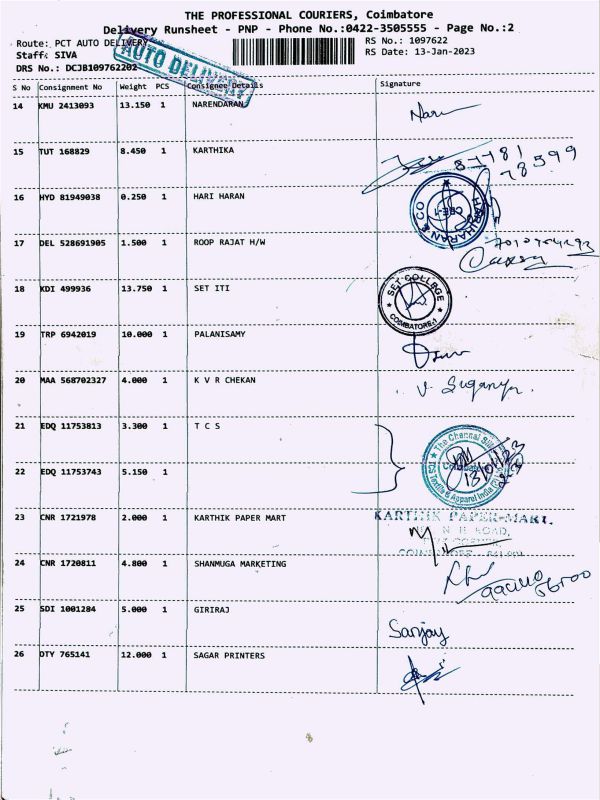 THE PROFESSIONAL COURIERS, Coimbatore
Delivery Runsheet - PNP - Phone No.:0422-3505555 - Page No.:2
Route: PCT AUTO DELIVERY
RS No.: 1097622
Staff: SIVA
RS Date: 13-Jan-2023
DRS No.: DCJB109762202
AUTO DELIVERY
S No Consignment No Weight PCS Consignee Details Signature
14 KMU 2413093 13.150 1 NARENDARAN
15 TUT 168829 8.450 1 KARTHIKA
16 HYD 81949038 0.250 1 HARI HARAN
HARIHARAN & CO
CBE-1
17 DEL 528691905 1.500 1 ROOP RAJAT H/W
18 KDI 499936 13.750 1 SET ITI
SET COLLEGE
COIMBATORE-1
19 TRP 6942019 10.000 1 PALANISAMY
20 MAA 568702327 4.000 1 K V R CHEKAN
V. Suganya
21 EDQ 11753813 3.300 1 T C S
The Chennai Silks
Coimbatore
13/01/23
22 EDQ 11753743 5.150 1
23 CNR 1721978 2.000 1 KARTHIK PAPER MART
KARTHIK PAPER-MART.
24 CNR 1720811 4.800 1 SHANMUGA MARKETING
25 SDI 1001284 5.000 1 GIRIRAJ
Sanjay
26 DTY 765141 12.000 1 SAGAR PRINTERS